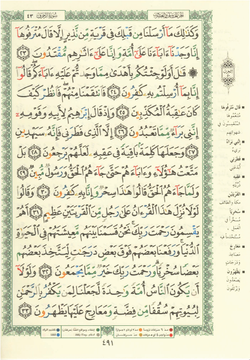 وَكَذَٰلِكَ مَآ أَرْسَلْنَا مِن قَبْلِكَ فِى قَرْيَةٍ مِّن نَّذِيرٍ إِلَّا قَالَ مُتْرَفُوهَآ
إِنَّا وَجَدْنَآ ءَابَآءَنَا عَلَىٰٓ أُمَّةٍ وَإِنَّا عَلَىٰٓ ءَاثَٰرِهِم مُّقْتَدُونَ
﴿٢٣﴾ قَٰلَ أَوَلَوْ جِئْتُكُم بِأَهْدَىٰ مِمَّا وَجَدتُّمْ عَلَيْهِ ءَابَآءَكُمْ قَالُوٓا۟
إِنَّا بِمَآ أُرْسِلْتُم بِهِۦ كَٰفِرُونَ ﴿٢٤﴾ فَٱنتَقَمْنَا مِنْهُمْ فَٱنظُرْ كَيْفَ
كَانَ عَٰقِبَةُ ٱلْمُكَذِّبِينَ ﴿٢٥﴾ وَإِذْ قَالَ إِبْرَٰهِيمُ لِأَبِيهِ وَقَوْمِهِۦٓ
إِنَّنِى بَرَآءٌ مِّمَّا تَعْبُدُونَ ﴿٢٦﴾ إِلَّا ٱلَّذِى فَطَرَنِى فَإِنَّهُۥ سَيَهْدِينِ
﴿٢٧﴾ وَجَعَلَهَا كَلِمَةًۢ بَاقِيَةً فِى عَقِبِهِۦ لَعَلَّهُمْ يَرْجِعُونَ ﴿٢٨﴾ بَلْ
مَتَّعْتُ هَٰٓؤُلَآءِ وَءَابَآءَهُمْ حَتَّىٰ جَآءَهُمُ ٱلْحَقُّ وَرَسُولٌ مُّبِينٌ ﴿٢٩﴾
وَلَمَّا جَآءَهُمُ ٱلْحَقُّ قَالُوا۟ هَٰذَا سِحْرٌ وَإِنَّا بِهِۦ كَٰفِرُونَ ﴿٣٠﴾ وَقَالُوا۟
لَوْلَا نُزِّلَ هَٰذَا ٱلْقُرْءَانُ عَلَىٰ رَجُلٍ مِّنَ ٱلْقَرْيَتَيْنِ عَظِيمٍ ﴿٣١﴾ أَهُمْ
يَقْسِمُونَ رَحْمَتَ رَبِّكَ نَحْنُ قَسَمْنَا بَيْنَهُم مَّعِيشَتَهُمْ فِى ٱلْحَيَوٰةِ
ٱلدُّنْيَا وَرَفَعْنَا بَعْضَهُمْ فَوْقَ بَعْضٍ دَرَجَٰتٍ لِّيَتَّخِذَ بَعْضُهُم
بَعْضًا سُخْرِيًّا وَرَحْمَتُ رَبِّكَ خَيْرٌ مِّمَّا يَجْمَعُونَ ﴿٣٢﴾ وَلَوْلَآ
أَن يَكُونَ ٱلنَّاسُ أُمَّةً وَٰحِدَةً لَّجَعَلْنَا لِمَن يَكْفُرُ بِٱلرَّحْمَٰنِ
لِبُيُوتِهِمْ سُقُفًا مِّن فِضَّةٍ وَمَعَارِجَ عَلَيْهَا يَظْهَرُونَ ﴿٣٣﴾
٤٩١